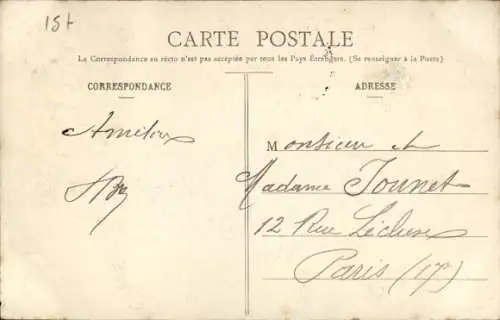 15t
CARTE POSTALE
La Correspondance au recto n'est pas acceptée par tous les Pays Étrangers. (Se renseigner à la Poste)
CORRESPONDANCE
ADRESSE
Amitiés
Monsieur et
Madame Jounet
12 Rue Lécluse
Paris (17e)